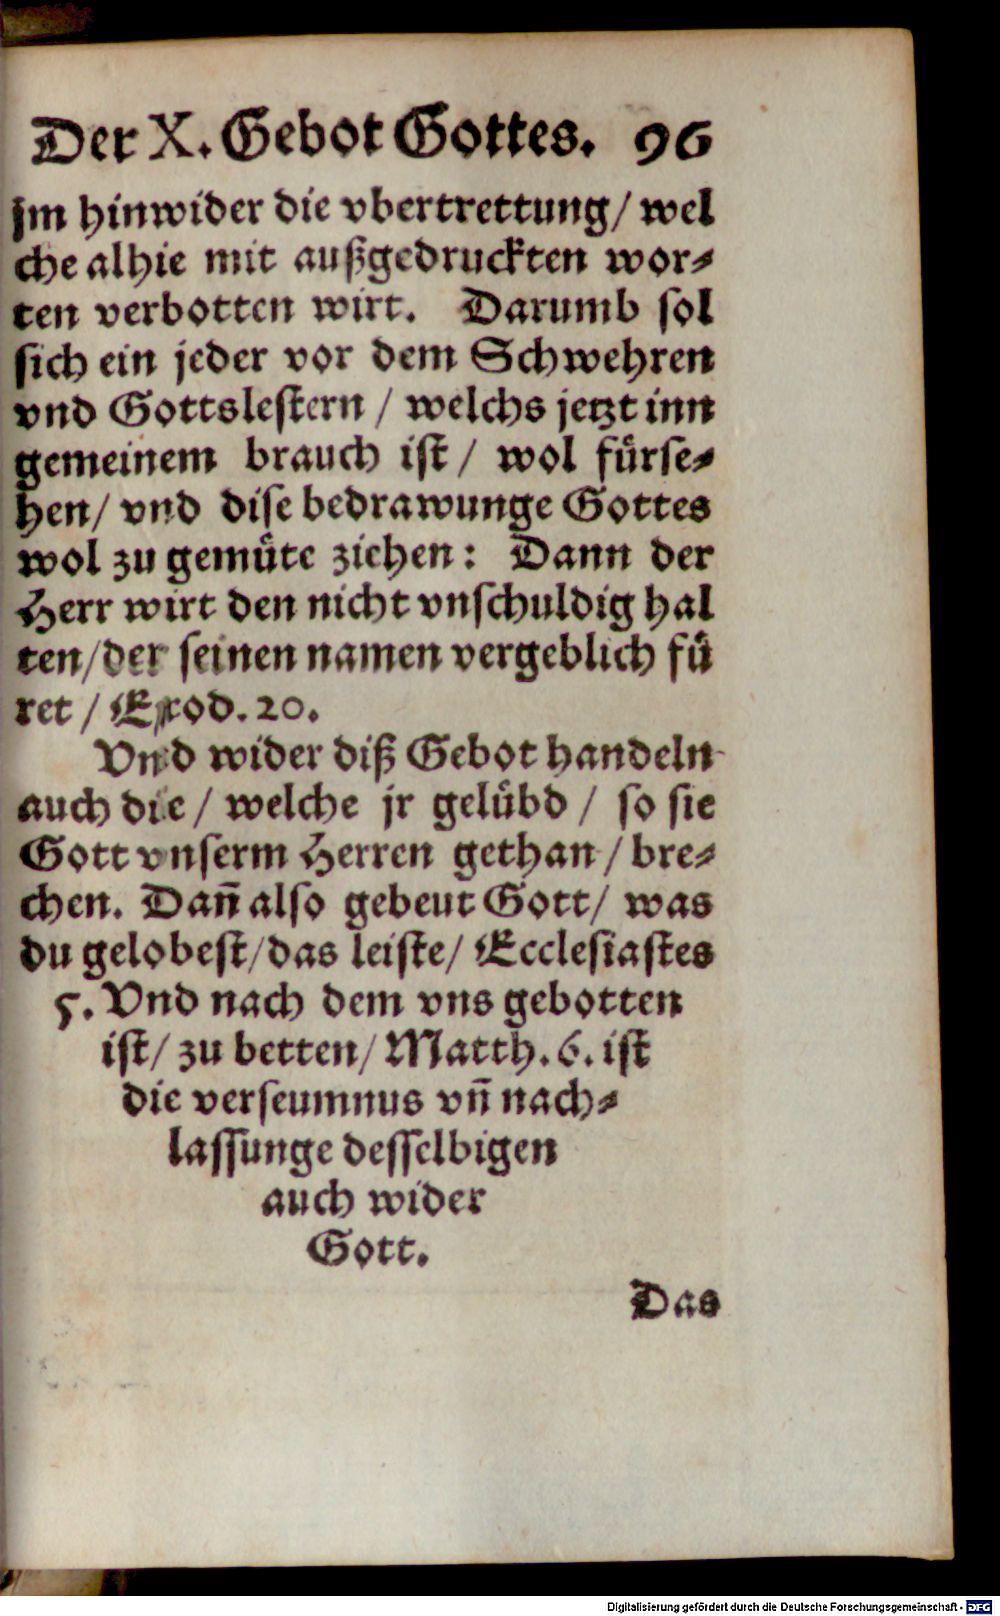 Der X. Gebot Gottes. 96
jm hinwider die vbertrettung/ wel
che alhie mit außgedruckten wor⸗
ten verbotten wirt. Darumb sol
sich ein jeder vor dem Schwehren
vnd Gottslestern / welchs jetzt inn
gemeinem brauch ist / wol fuͤrse⸗
hen/ vnd dise bedrawunge Gottes
wol zu gemuͤte ziehen: Dann der
Herr wirt den nicht vnschuldig hal
ten/der seinen namen vergeblich fuͤ
ret / Exod. 20.
Vnd wider diß Gebot handeln
auch die / welche jr geluͤbd / so sie
Gott vnserm Herren gethan / bre⸗
chen. Dañ also gebeut Gott/ was
du gelobest/das leiste/ Ecclesiastes
5. Vnd nach dem vns gebotten
ist/ zu betten/ Matth. 6. ist
die verseumnus vñ nach⸗
lassunge desselbigen
auch wider
Gott.
Das
Digitalisierung gefördert durch die Deutsche Forschungsgemeinschaft - DFG